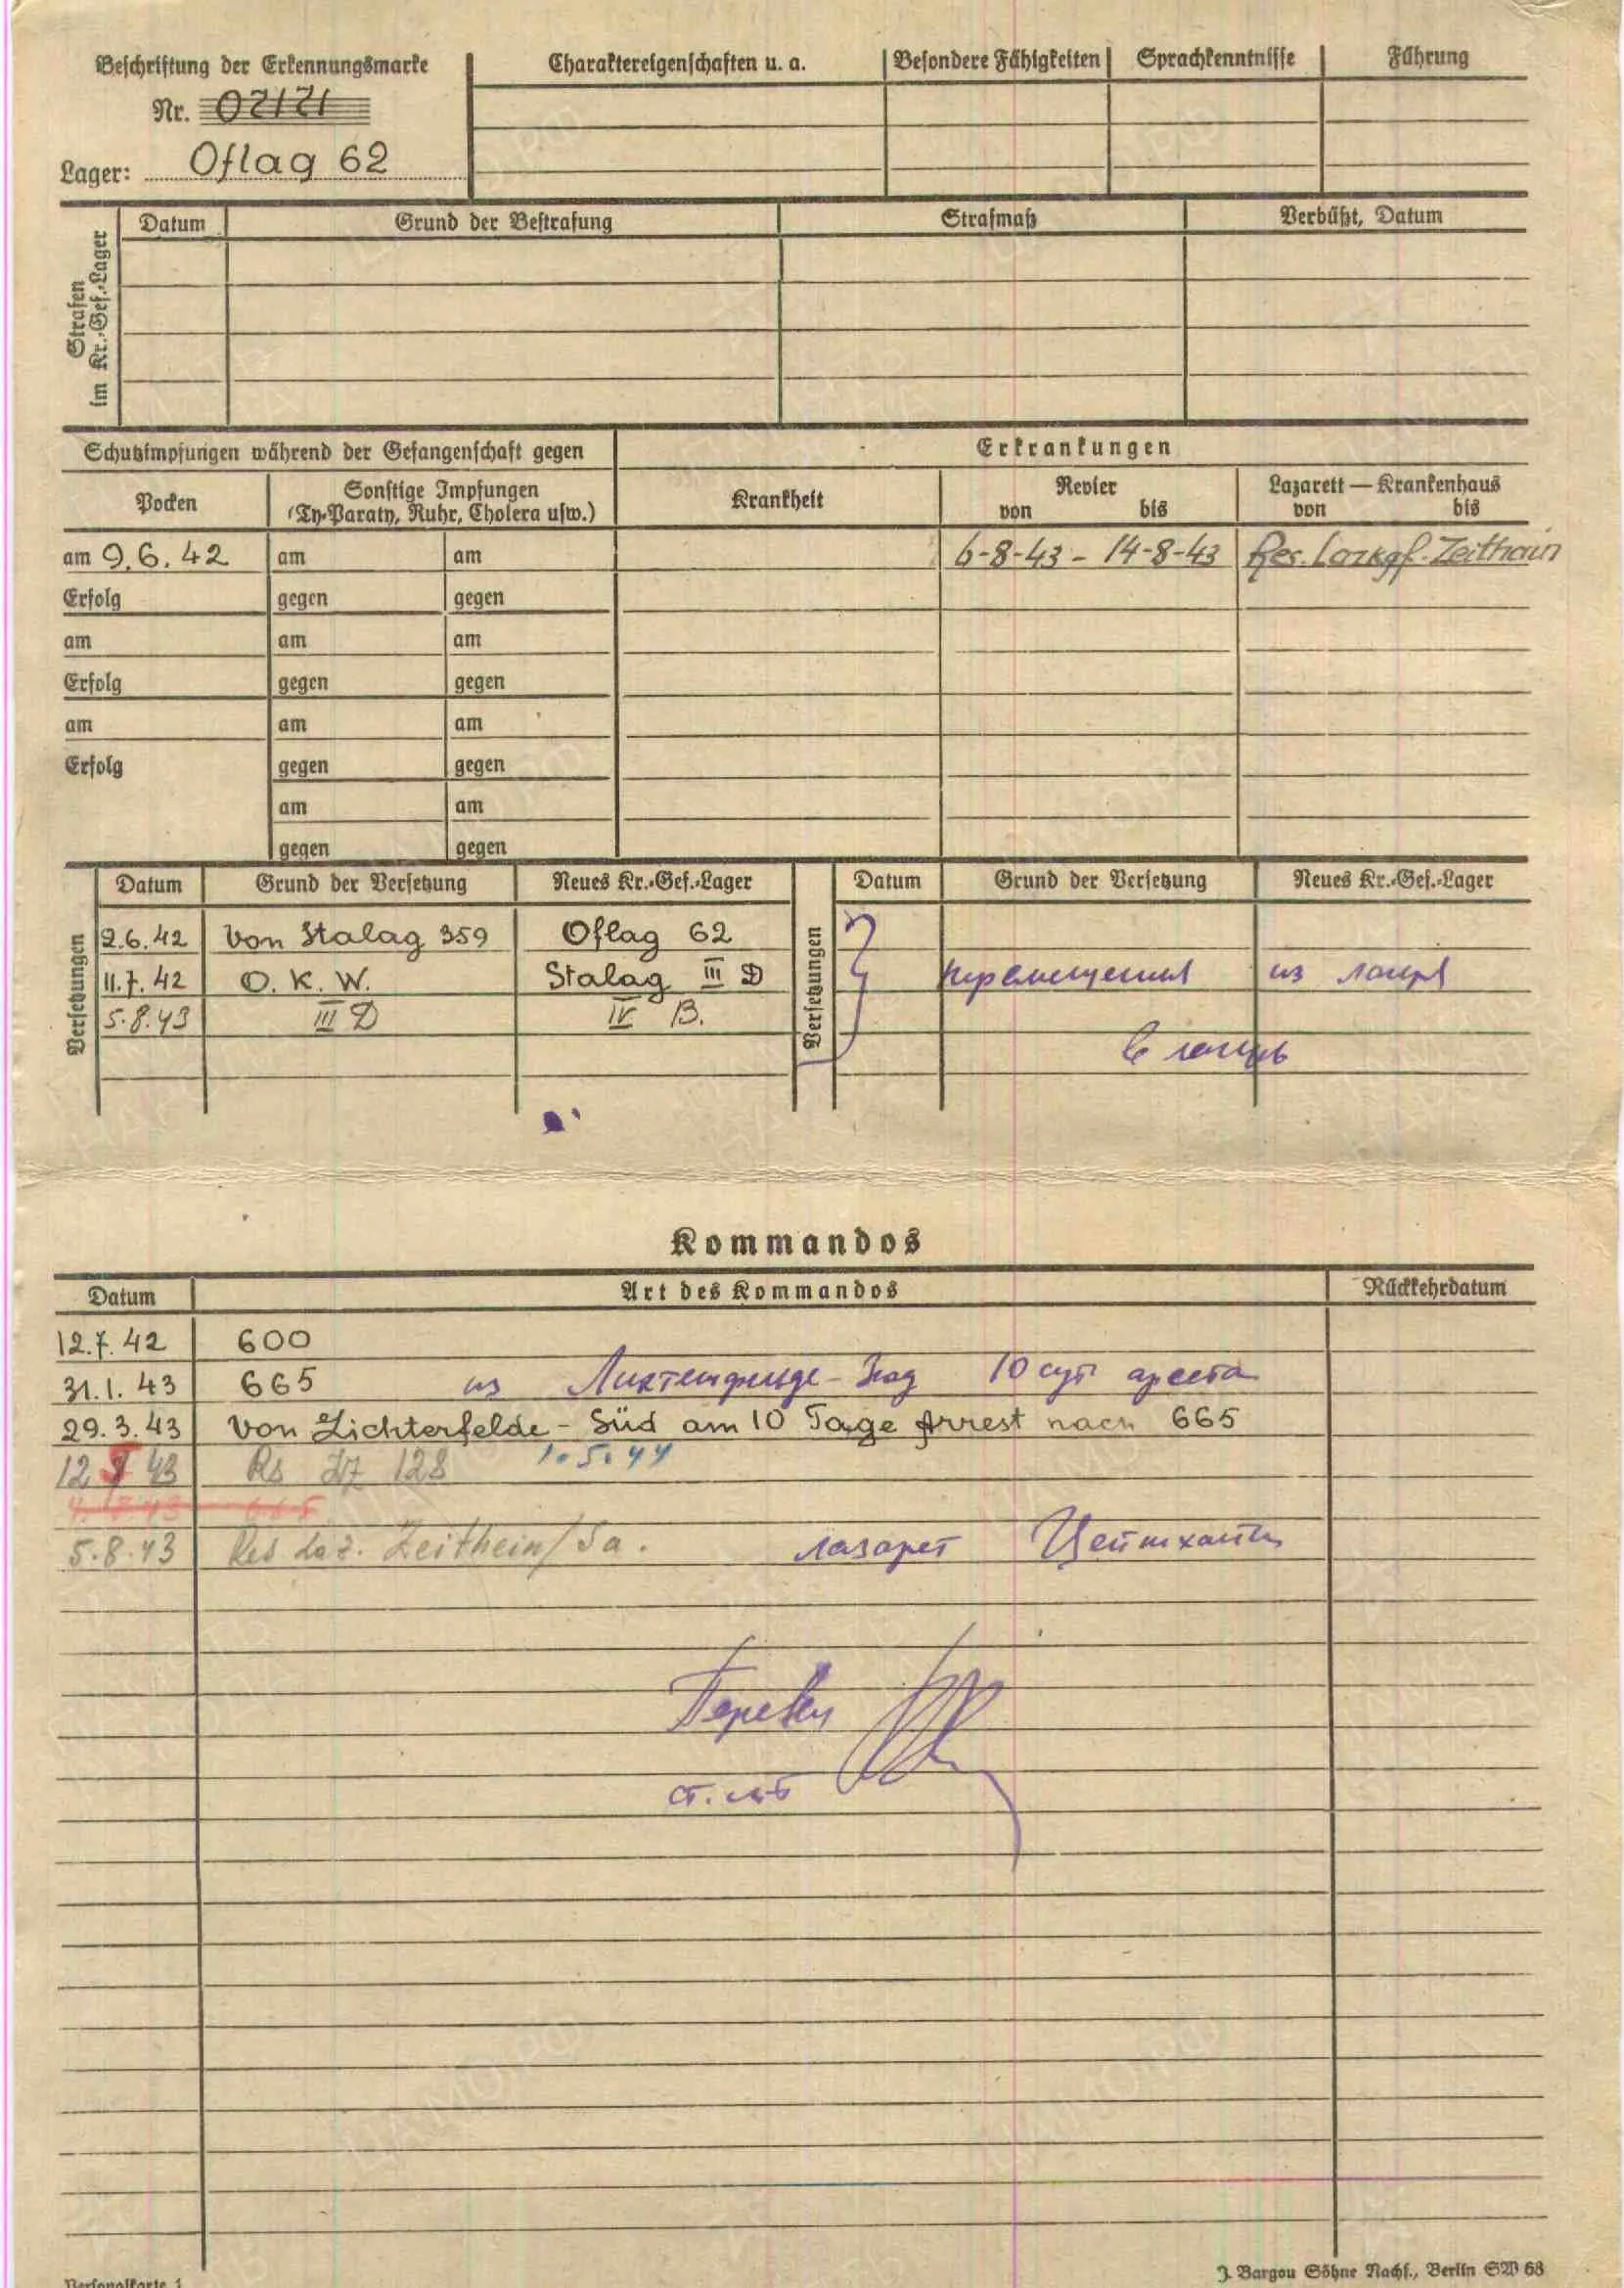 Beschriftung der Erkennungsmarke
Nr. 02121
Lager: Oflag 62
Charaktereigenschaften u. a. Besondere Fähigkeiten Sprachkenntnisse Führung
Strafen
im Kr.-Gef.-Lager
Datum Grund der Bestrafung Strafmaß Verbüßt, Datum
Schutzimpfungen während der Gefangenschaft gegen Erkrankungen
Pocken Sonstige Impfungen Krankheit Revier Lazarett — Krankenhaus
(Ty-Paraty, Ruhr, Cholera usw.) von bis von bis
am 9.6.42 am am 6-8-43 - 14-8-43 Res. Zeithain
Erfolg gegen gegen
am am am
Erfolg gegen gegen
am am am
Erfolg gegen gegen
am am
gegen gegen
Versetzungen Datum Grund der Versetzung Neues Kr.-Gef.-Lager Versetzungen Datum Grund der Versetzung Neues Kr.-Gef.-Lager
2.6.42 von Stalag 359 Oflag 62
11.7.42 O.K.W. Stalag III D перемещения из лагеря
5.8.43 III D IV B.
в лагерь
Kommandos
Datum Art des Kommandos Rückkehrdatum
12.7.42 600
31.1.43 665 из Лихтенфельде-Зюд 10 сут ареста
29.3.43 von Lichterfelde-Süd am 10 Tage Arrest nach 665
12 43 Rs Lz 128 1.5.44
665
5.8.43 Res Laz. Zeithein/Sa. лазарет Цейтхайн
Перевел
ст. л-т
Personalkarte 1
J. Bargou Söhne Nachf., Berlin SW 68